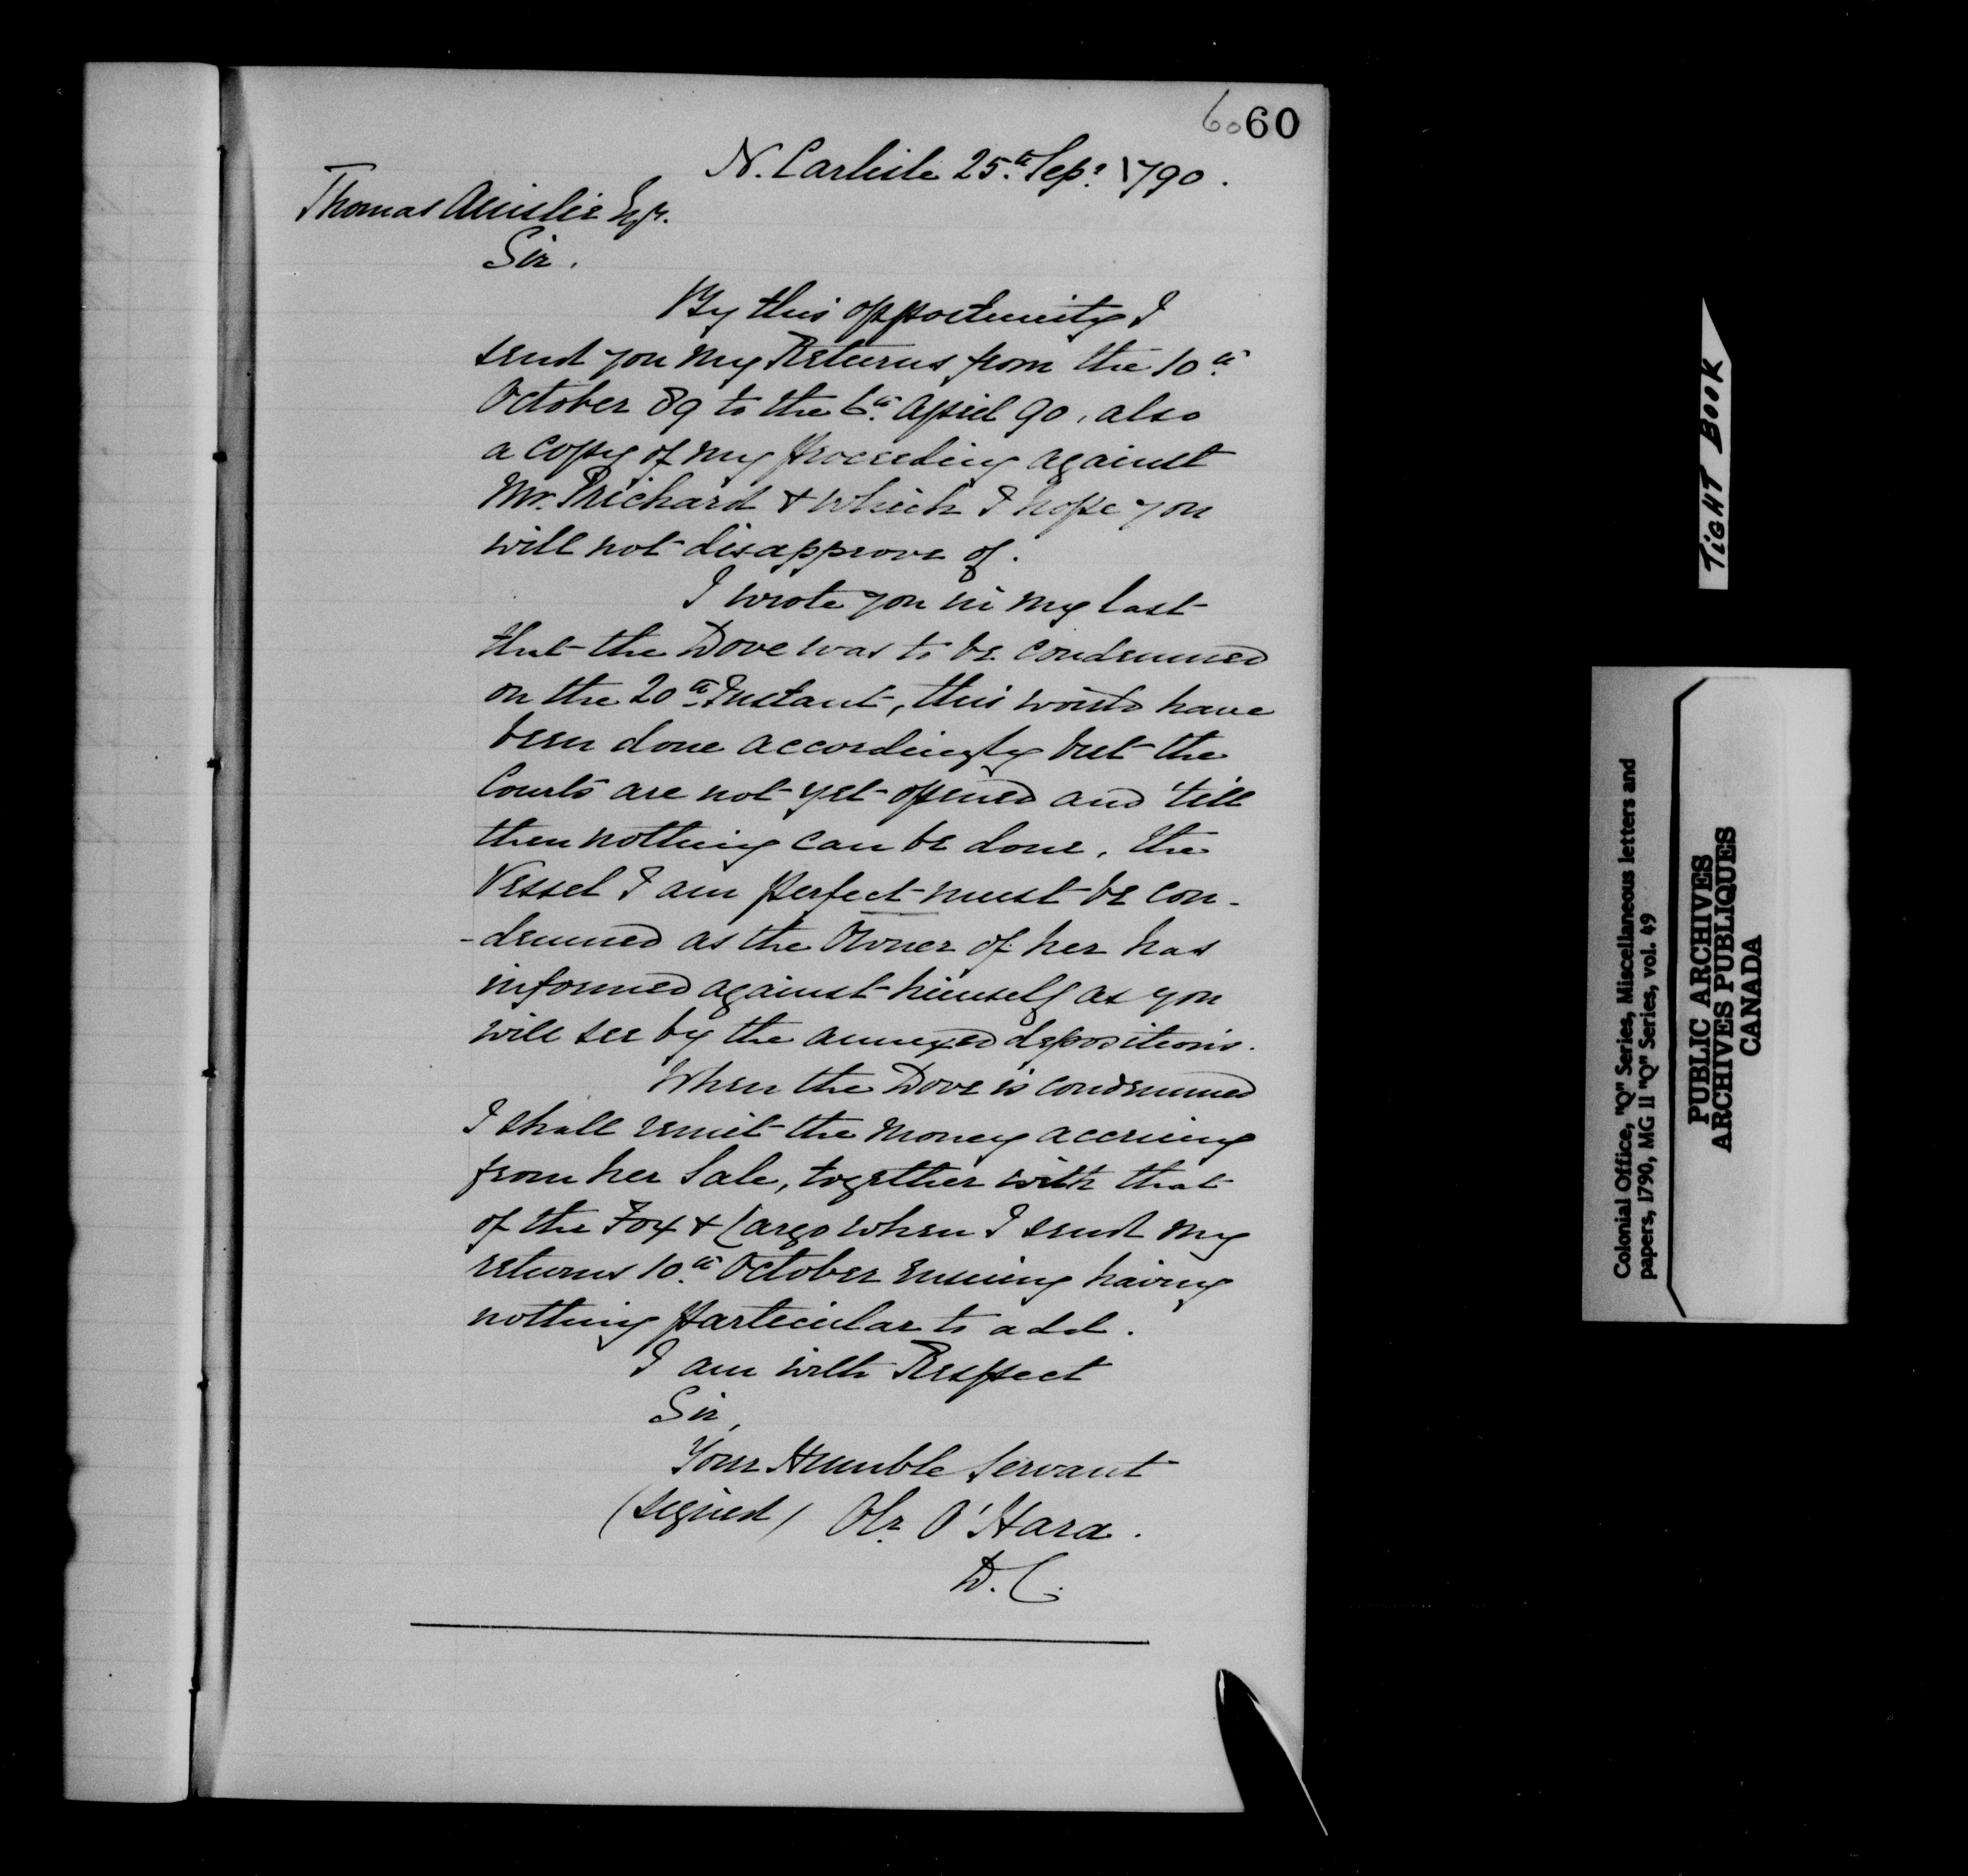 60 60
N. Carlisle 25th Sepr 1790.
Thomas Ainslie Esqr.
Sir.
By this opportunity I
send you my Returns from the 10th
October 89 to the 6th April 90, also
a copy of my proceeding against
Mr. Prichard & which I hope you
will not disapprove of.
I wrote you in my last
that the Dove was to be condemned
on the 20th Instant, this would have
been done accordingly but the
Courts are not yet opened and 'till
then nothing can be done, the
Vessel I am perfect must be con-
-demned as the Owner of her has
informed against himself as you
will see by the annexed depositions.
When the Dove is condemned
I shall remit the money accruing
from her Sale, together with that
of the Fox & Cargo when I send my
returns 10th October ensuing having
nothing particular to add.
I am with Respect
Sir,
Your Humble Servant
(signed) Olr. O'Hara.
D.C.
TIGHT BOOK
Colonial Office, "Q" Series, Miscellaneous letters and
papers, 1790, MG 11 "Q" Series, vol. 49
PUBLIC ARCHIVES
ARCHIVES PUBLIQUES
CANADA